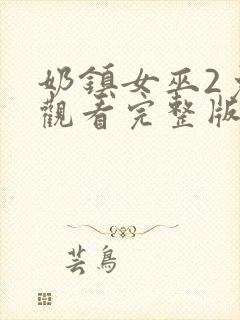 奶鎮女巫2
觀看完整版
芸鳥